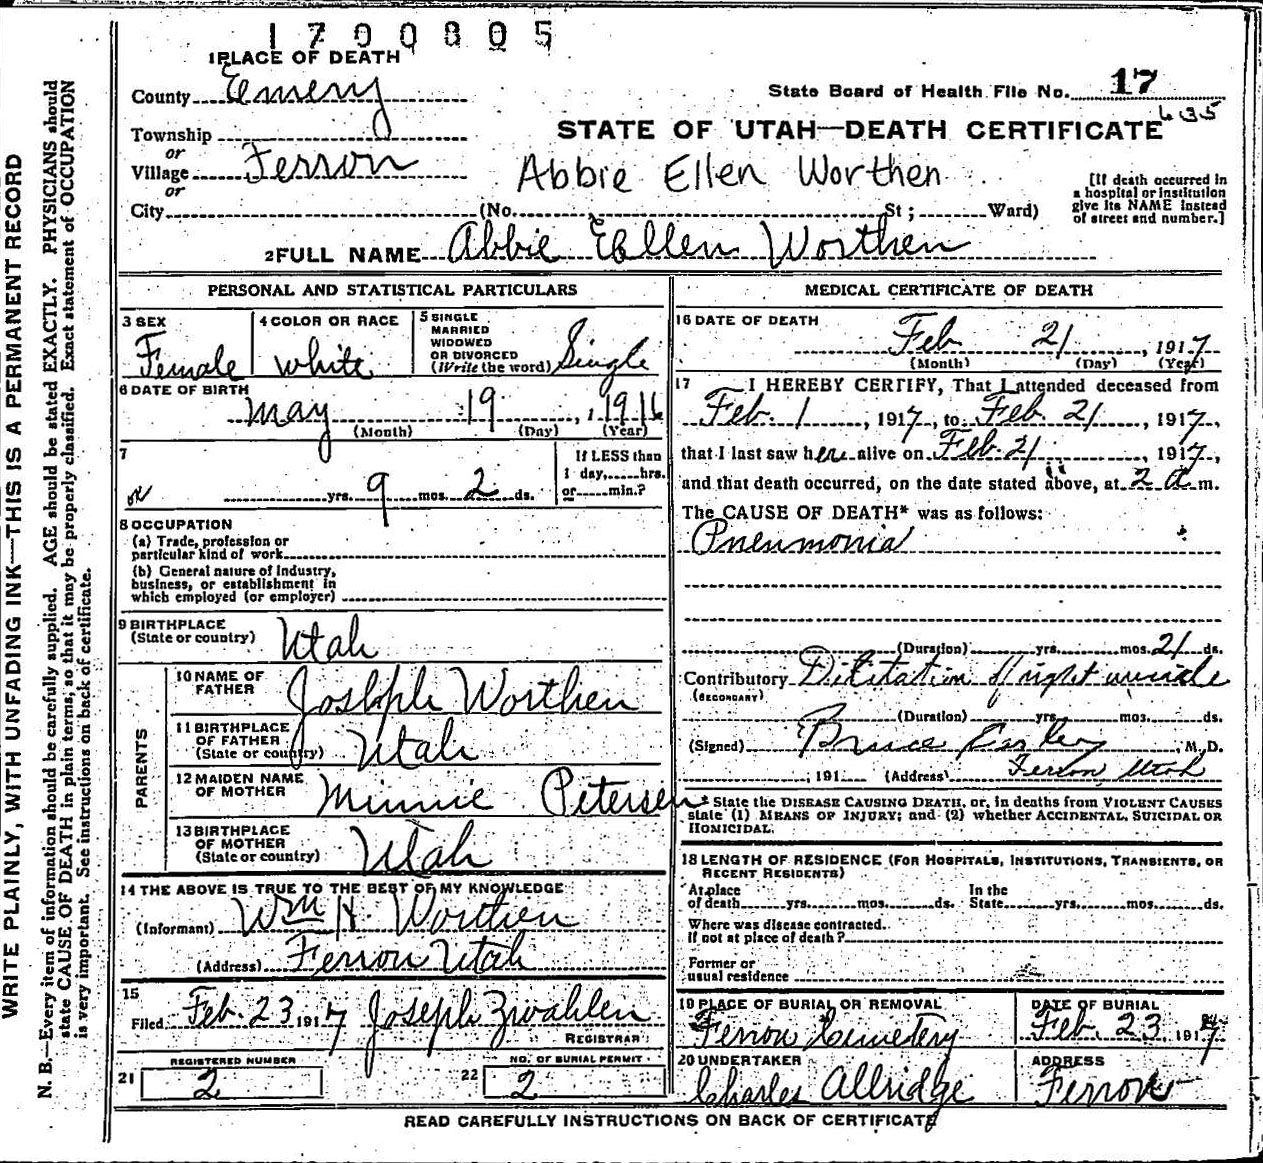 1700805
1 PLACE OF DEATH
County Emery
State Board of Health File No. 17
635
Township
or
STATE OF UTAH—DEATH CERTIFICATE
Village Ferron
or
Abbie Ellen Worthen
[If death occurred in
a hospital or institution
give its NAME instead
of street and number.]
City (No. St; Ward)
2 FULL NAME Abbie Ellen Worthen
PERSONAL AND STATISTICAL PARTICULARS
3 SEX Female
4 COLOR OR RACE white
5 SINGLE
MARRIED
WIDOWED
OR DIVORCED
(Write the word) Single
6 DATE OF BIRTH
May 19, 1916
(Month) (Day) (Year)
7
yrs. 9 mos. 2 ds.
If LESS than
1 day, hrs.
or min.?
8 OCCUPATION
(a) Trade, profession or
particular kind of work
(b) General nature of Industry,
business, or establishment in
which employed (or employer)
9 BIRTHPLACE
(State or country) Utah
PARENTS
10 NAME OF
FATHER Joseph Worthen
11 BIRTHPLACE
OF FATHER
(State or country) Utah
12 MAIDEN NAME
OF MOTHER Minnie Petersen
13 BIRTHPLACE
OF MOTHER
(State or country) Utah
14 THE ABOVE IS TRUE TO THE BEST OF MY KNOWLEDGE
(Informant) Wm H. Worthen
(Address) Ferron Utah
15
Filed Feb. 23 1917 Joseph Zwahlen
REGISTRAR
REGISTERED NUMBER
21 2
NO. OF BURIAL PERMIT
22 2
MEDICAL CERTIFICATE OF DEATH
16 DATE OF DEATH
Feb 21, 1917
(Month) (Day) (Year)
17 I HEREBY CERTIFY, That I attended deceased from
Feb. 1, 1917, to Feb. 21, 1917,
that I last saw her alive on Feb. 21, 1917,
and that death occurred, on the date stated above, at 2 a m.
The CAUSE OF DEATH* was as follows:
Pneumonia
(Duration) yrs. mos. 21 ds.
Contributory of right
(SECONDARY)
(Duration) yrs. mos. ds.
(Signed) Bruce Easley, M. D.
, 191 (Address) Ferron Utah
* State the DISEASE CAUSING DEATH, or, in deaths from VIOLENT CAUSES
state (1) MEANS OF INJURY; and (2) whether ACCIDENTAL, SUICIDAL OR
HOMICIDAL.
18 LENGTH OF RESIDENCE (FOR HOSPITALS, INSTITUTIONS, TRANSIENTS, OR
RECENT RESIDENTS)
At place
of death yrs. mos. ds.
In the
State yrs. mos. ds.
Where was disease contracted.
If not at place of death?
Former or
usual residence
19 PLACE OF BURIAL OR REMOVAL
Ferron Cemetery
DATE OF BURIAL
Feb. 23, 1917
20 UNDERTAKER
Charles Allridge
ADDRESS
Ferron
READ CAREFULLY INSTRUCTIONS ON BACK OF CERTIFICATE
WRITE PLAINLY, WITH UNFADING INK—THIS IS A PERMANENT RECORD
N. B.—Every item of information should be carefully supplied. AGE should be stated EXACTLY. PHYSICIANS should
state CAUSE OF DEATH in plain terms, so that it may be properly classified. Exact statement of OCCUPATION
is very important. See instructions on back of certificate.